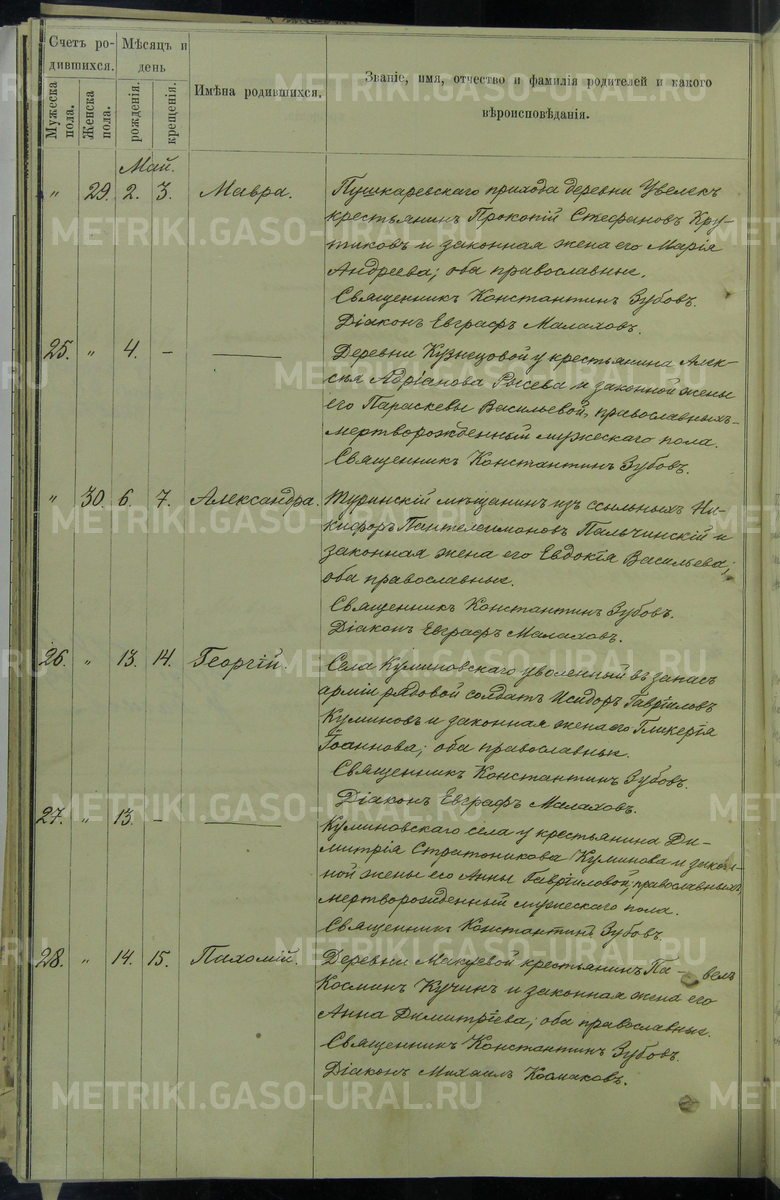 Счетъ ро-
дившихся.
Мѣсяцъ и
день
Имѣна родившихся.
Званіе, имя, отчество и фамилія родителей и какого
вѣроисповѣданія.
Мужеска
пола.
Женска
пола.
рожденія.
крещенія.
Май.
„ 29. 2. 3. Мавра. Пушкаревскаго прихода деревни Увелекъ
крестьянинъ Прокопій Стефановъ Кру-
тиковъ и законная жена его Марія
Андреева; оба православные.
Священникъ Константинъ Зубовъ.
Діаконъ Евграфъ Малаховъ.
25. „ 4. – — Деревни Кузнецовой у крестьянина Алек-
сѣя Адріанова Рысева и законной жены
его Параскевы Васильевой, православныхъ–
мертворожденный мужескаго пола.
Священникъ Константинъ Зубовъ.
„ 30. 6. 7. Александра. Туринскій мѣщанинъ изъ ссыльныхъ Ни-
кифоръ Пантелеимоновъ Пальчинскій и
законная жена его Евдокія Васильева;
оба православные.
Священникъ Константинъ Зубовъ.
Діаконъ Евграфъ Малаховъ.
26. „ 13. 14. Георгій. Села Куминовскаго уволенный въ запасъ
арміи рядовой солдатъ Исидоръ Гавріиловъ
Куминовъ и законная жена его Гликерія
Іоаннова; оба православные.
Священникъ Константинъ Зубовъ.
Діаконъ Евграфъ Малаховъ.
27. „ 13. – — Куминовскаго села у крестьянина Ди-
митрія Стратоникова Куминова и закон-
ной жены его Анны Гавріиловой, православныхъ
мертворожденный мужескаго пола.
Священникъ Константинъ Зубовъ.
28. „ 14. 15. Пахомій. Деревни Макуевой крестьянинъ Па-велъ
Косминъ Кучинъ и законная жена его
Анна Димитріева; оба православные.
Священникъ Константинъ Зубовъ.
Діаконъ Михаилъ Космаковъ.
METRIKI.GASO-URAL.RU